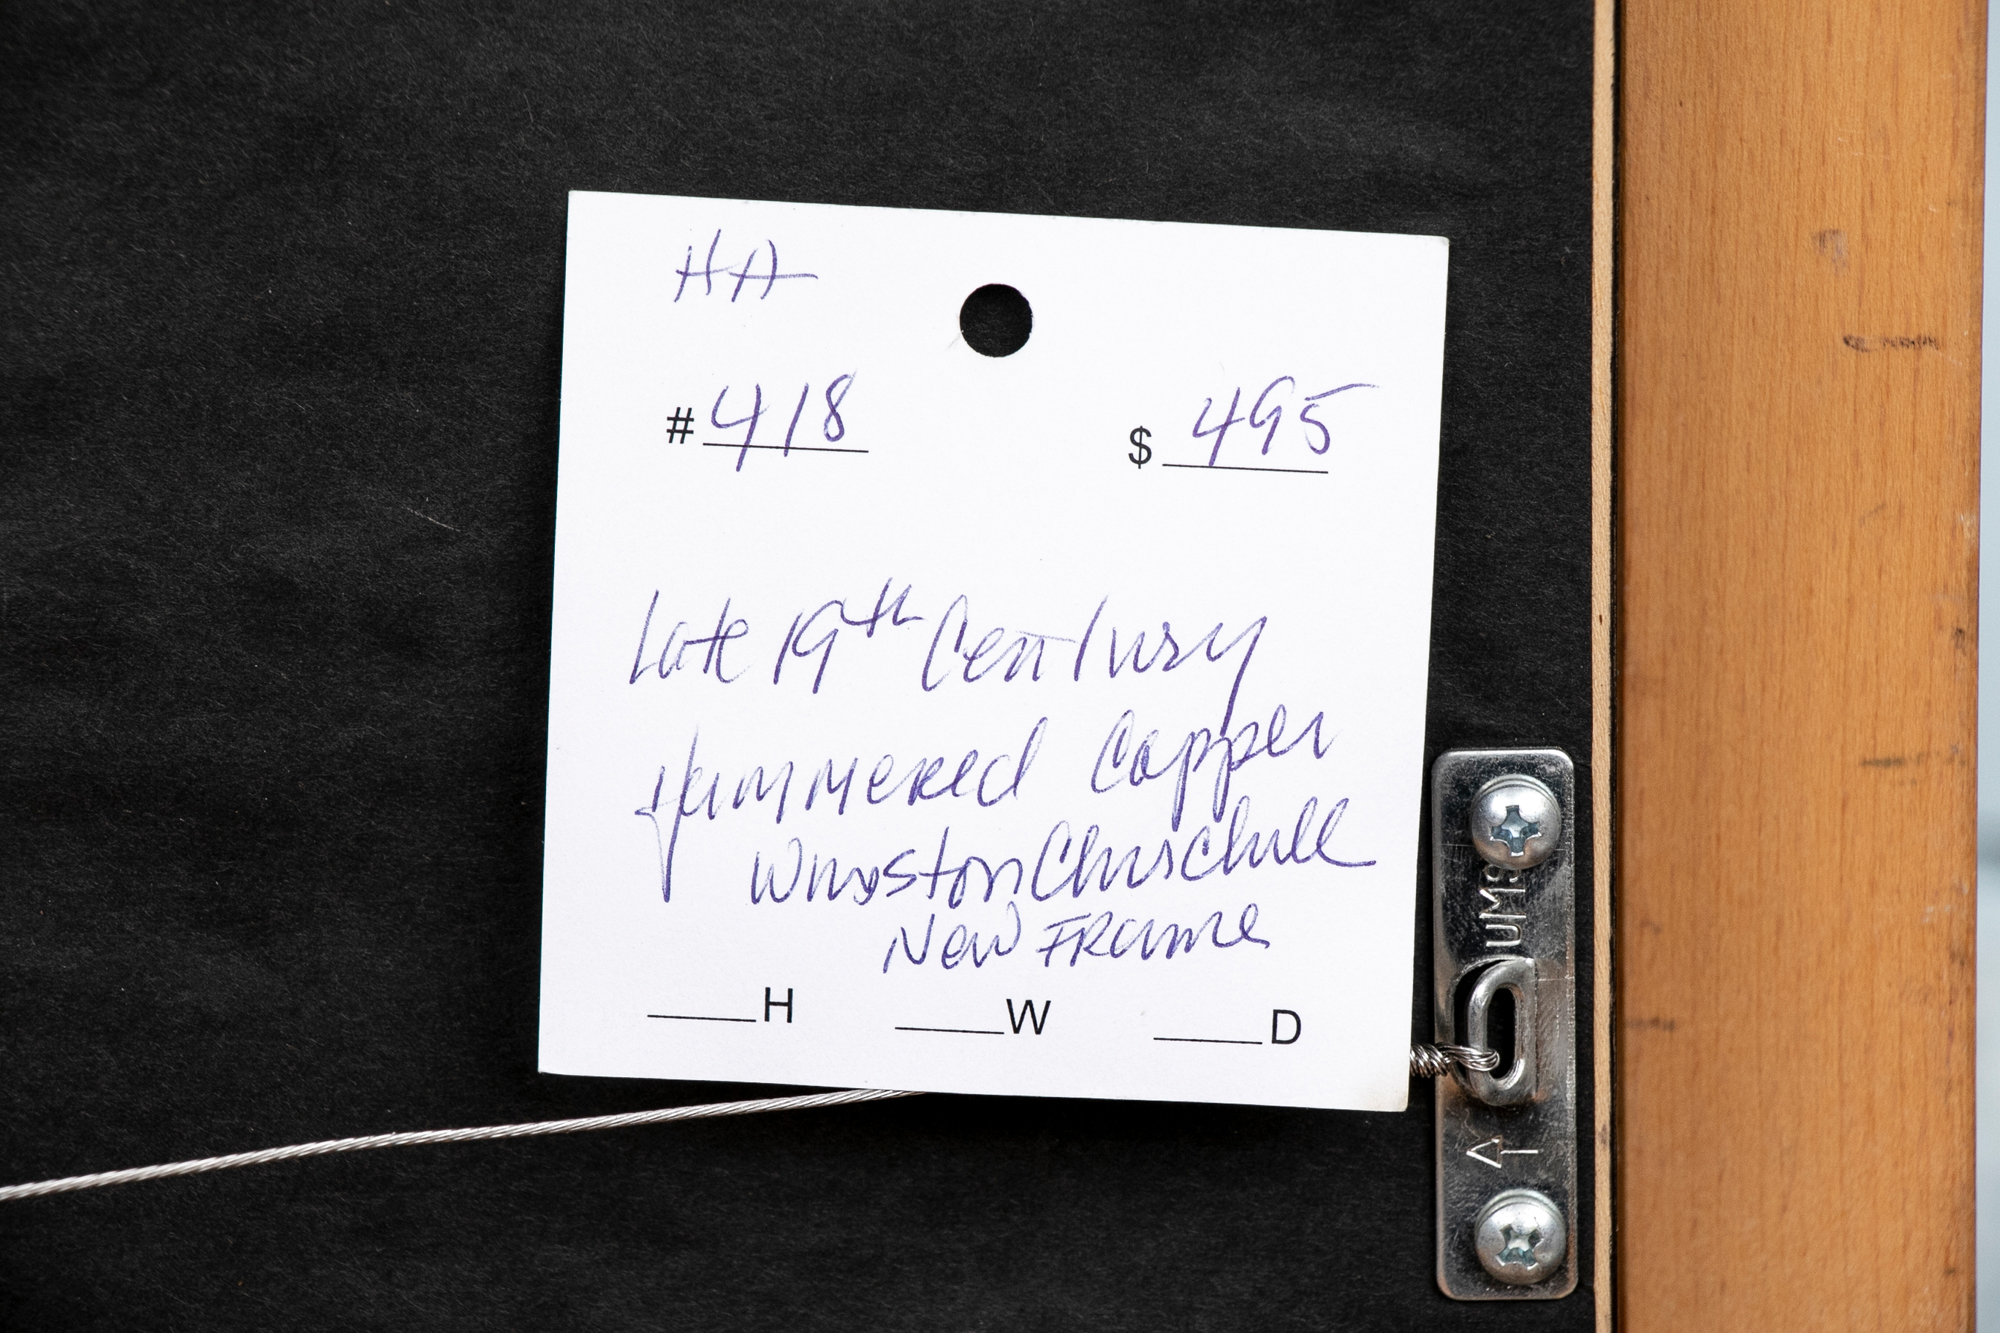 HA
# 418 $ 495
Late 19th Century
Hammered Copper
Winston Churchill
New Frame
H W D
UMS